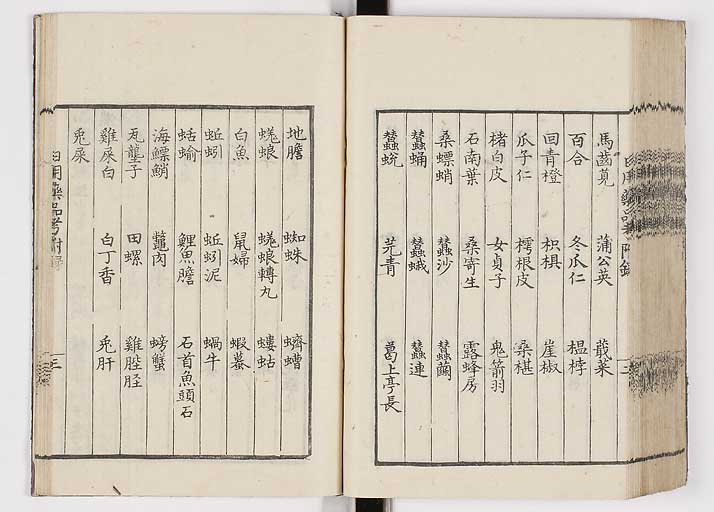 馬齒莧 蒲公英 蕺菜
百合 冬瓜仁 榲桲
回青橙 枳椇 崖椒
瓜子仁 樗根皮 桑椹
楮白皮 女貞子 鬼箭羽
石南葉 桑寄生 露蜂房
桑螵蛸 蠶沙 蠶繭
蠶蛹 蠶蛾 蠶連
蠶蛻 芫青 葛上亭長
地膽 蜘蛛 蠐螬
蜣蜋 蜣蜋轉丸 螻蛄
白魚 鼠婦 蝦蟇
蚯蚓 蚯蚓泥 蝸牛
蛞蝓 鯉魚膽 石首魚頭石
海鰾鮹 鼈肉 螃蟹
瓦壟子 田螺 雞膍胵
雞屎白 白丁香 兎肝
兎屎
日用藥品考附錄 三